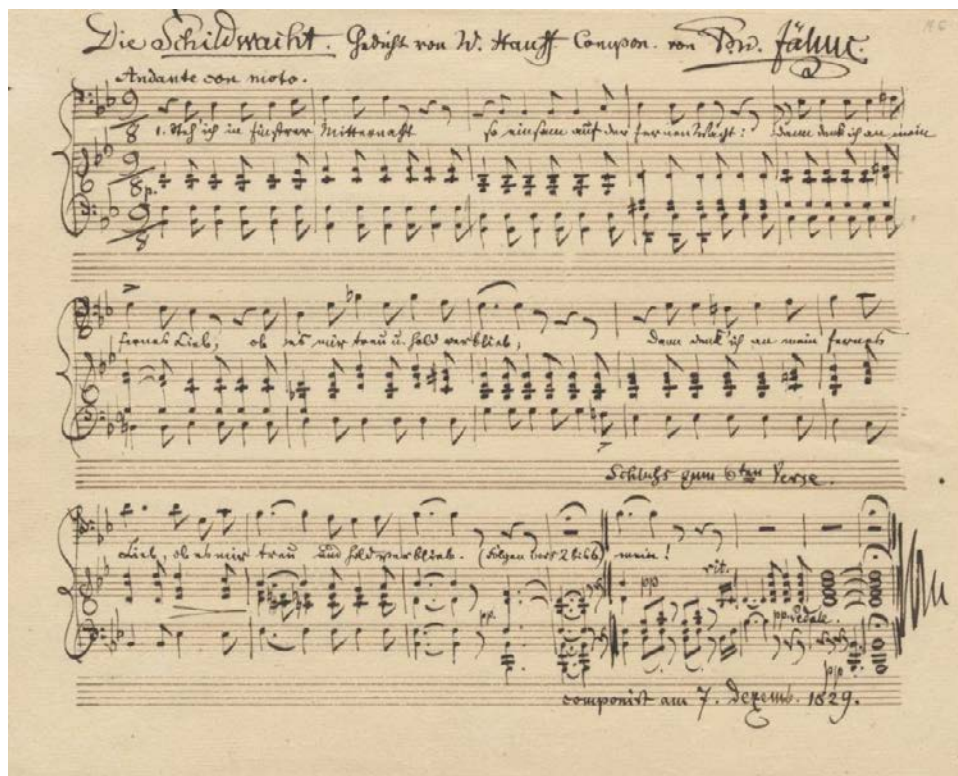 Die Schildwacht. Gedicht von W. Hauff. Compon. von
Andante con moto.
9/8
1. Steh' ich in finstrer Mitternacht so einsam auf der fernen Wacht: dann denk ich an mein
9/8
p.
9/8
fernes Lieb, ob es mir treu u. hold verblieb, dann denk ich an mein fernes
Schluſs zum 6ten Verse.
Lieb, ob es mir treu und hold verblieb. (Folgen Vers 2 bis 6) mein!
pp rit.
pp. pp. Pedale.
pp
componirt am 7. Dezemb. 1829.